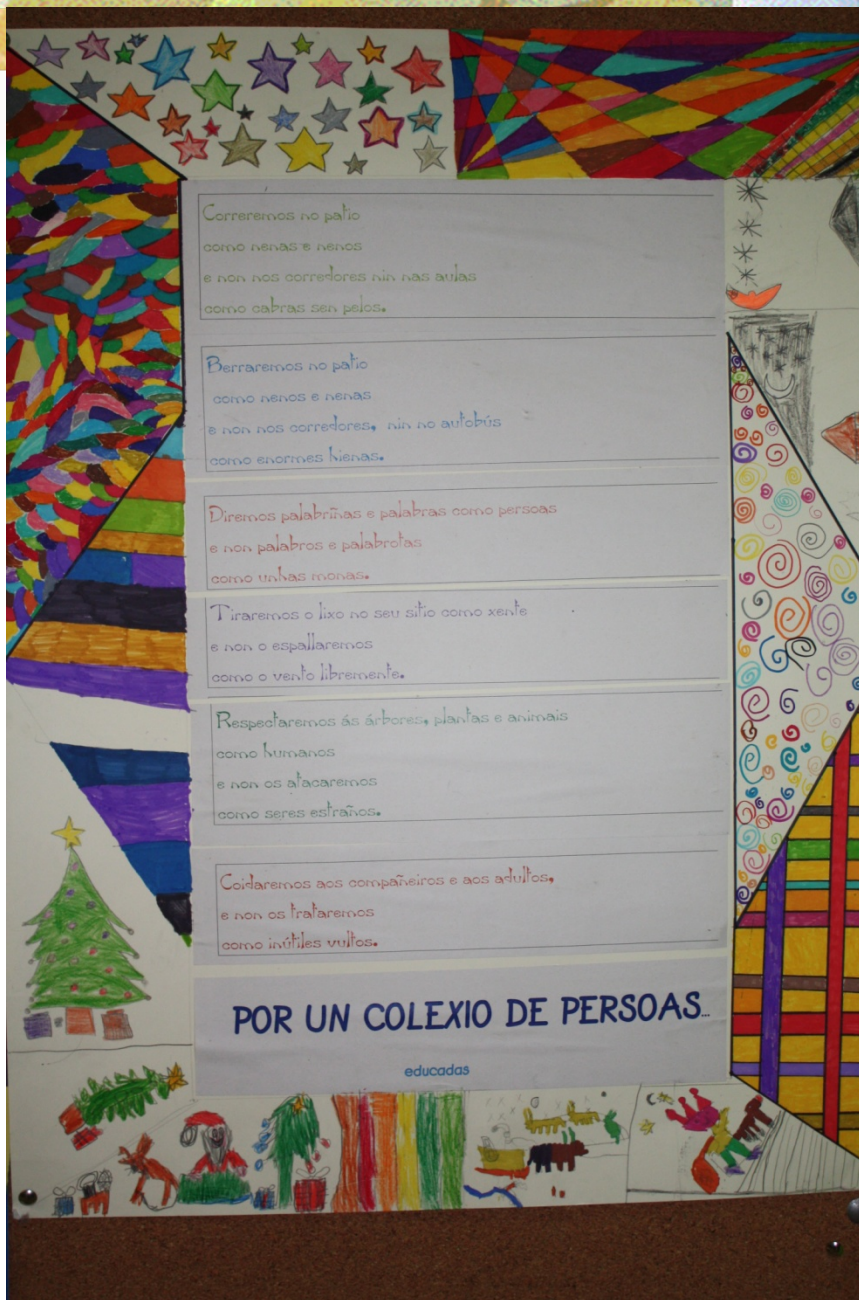 Correremos no patio
como nenas e nenos
e non nos corredores nin nas aulas
como cabras sen pelos.
Berraremos no patio
como nenos e nenas
e non nos corredores, nin no autobús
como enormes hienas.
Diremos palabriñas e palabras como persoas
e non palabros e palabrotas
como unhas monas.
Tiraremos o lixo no seu sitio como xente
e non o espallaremos
como o vento libremente.
Respectaremos ás árbores, plantas e animais
como humanos
e non os atacaremos
como seres estraños.
Coidaremos aos compañeiros e aos adultos,
e non os trataremos
como inútiles vultos.
POR UN COLEXIO DE PERSOAS...
educadas